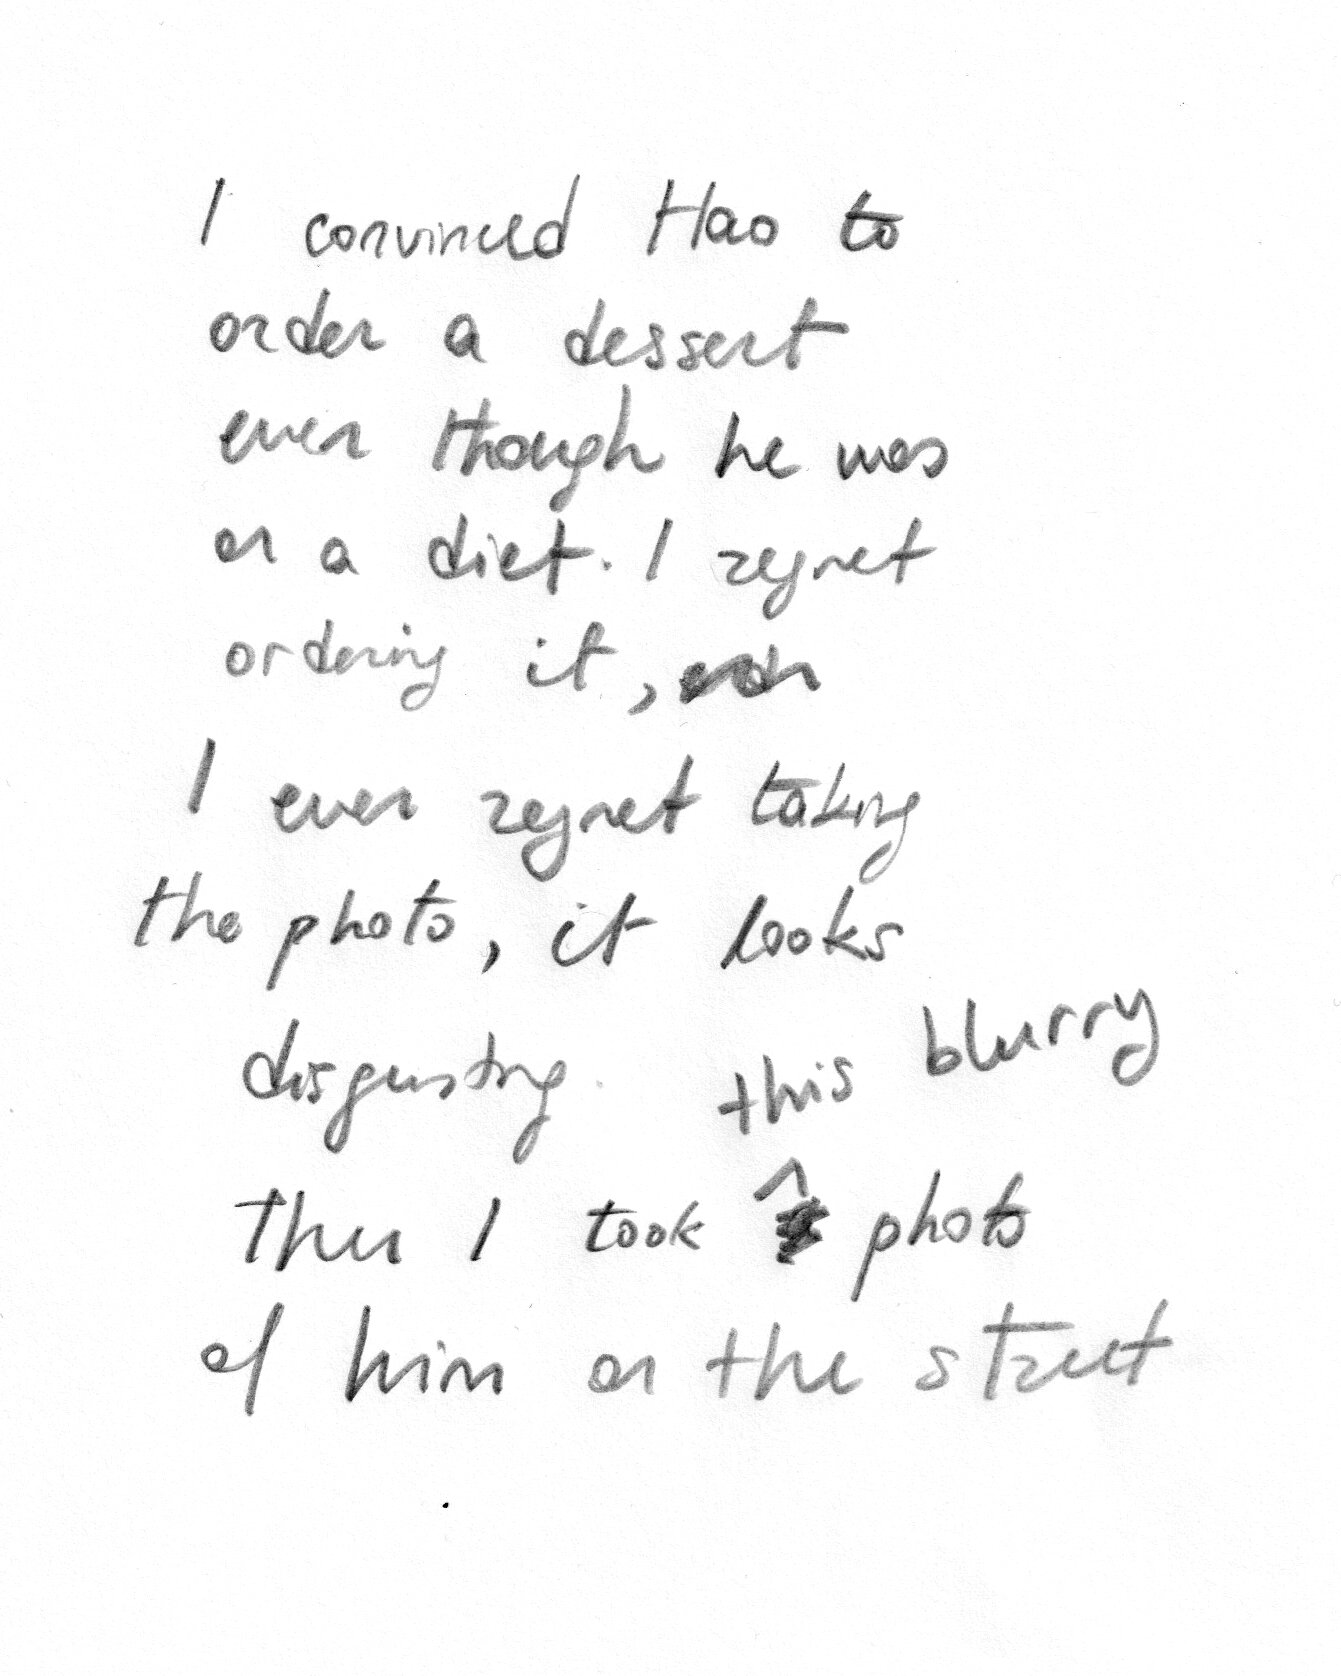 I convinced Hao to
order a dessert
even though he was
on a diet. I regret
ordering it,
I even regret taking
the photo, it looks
disgusting.
this blurry
Then I took photo
of him on the street